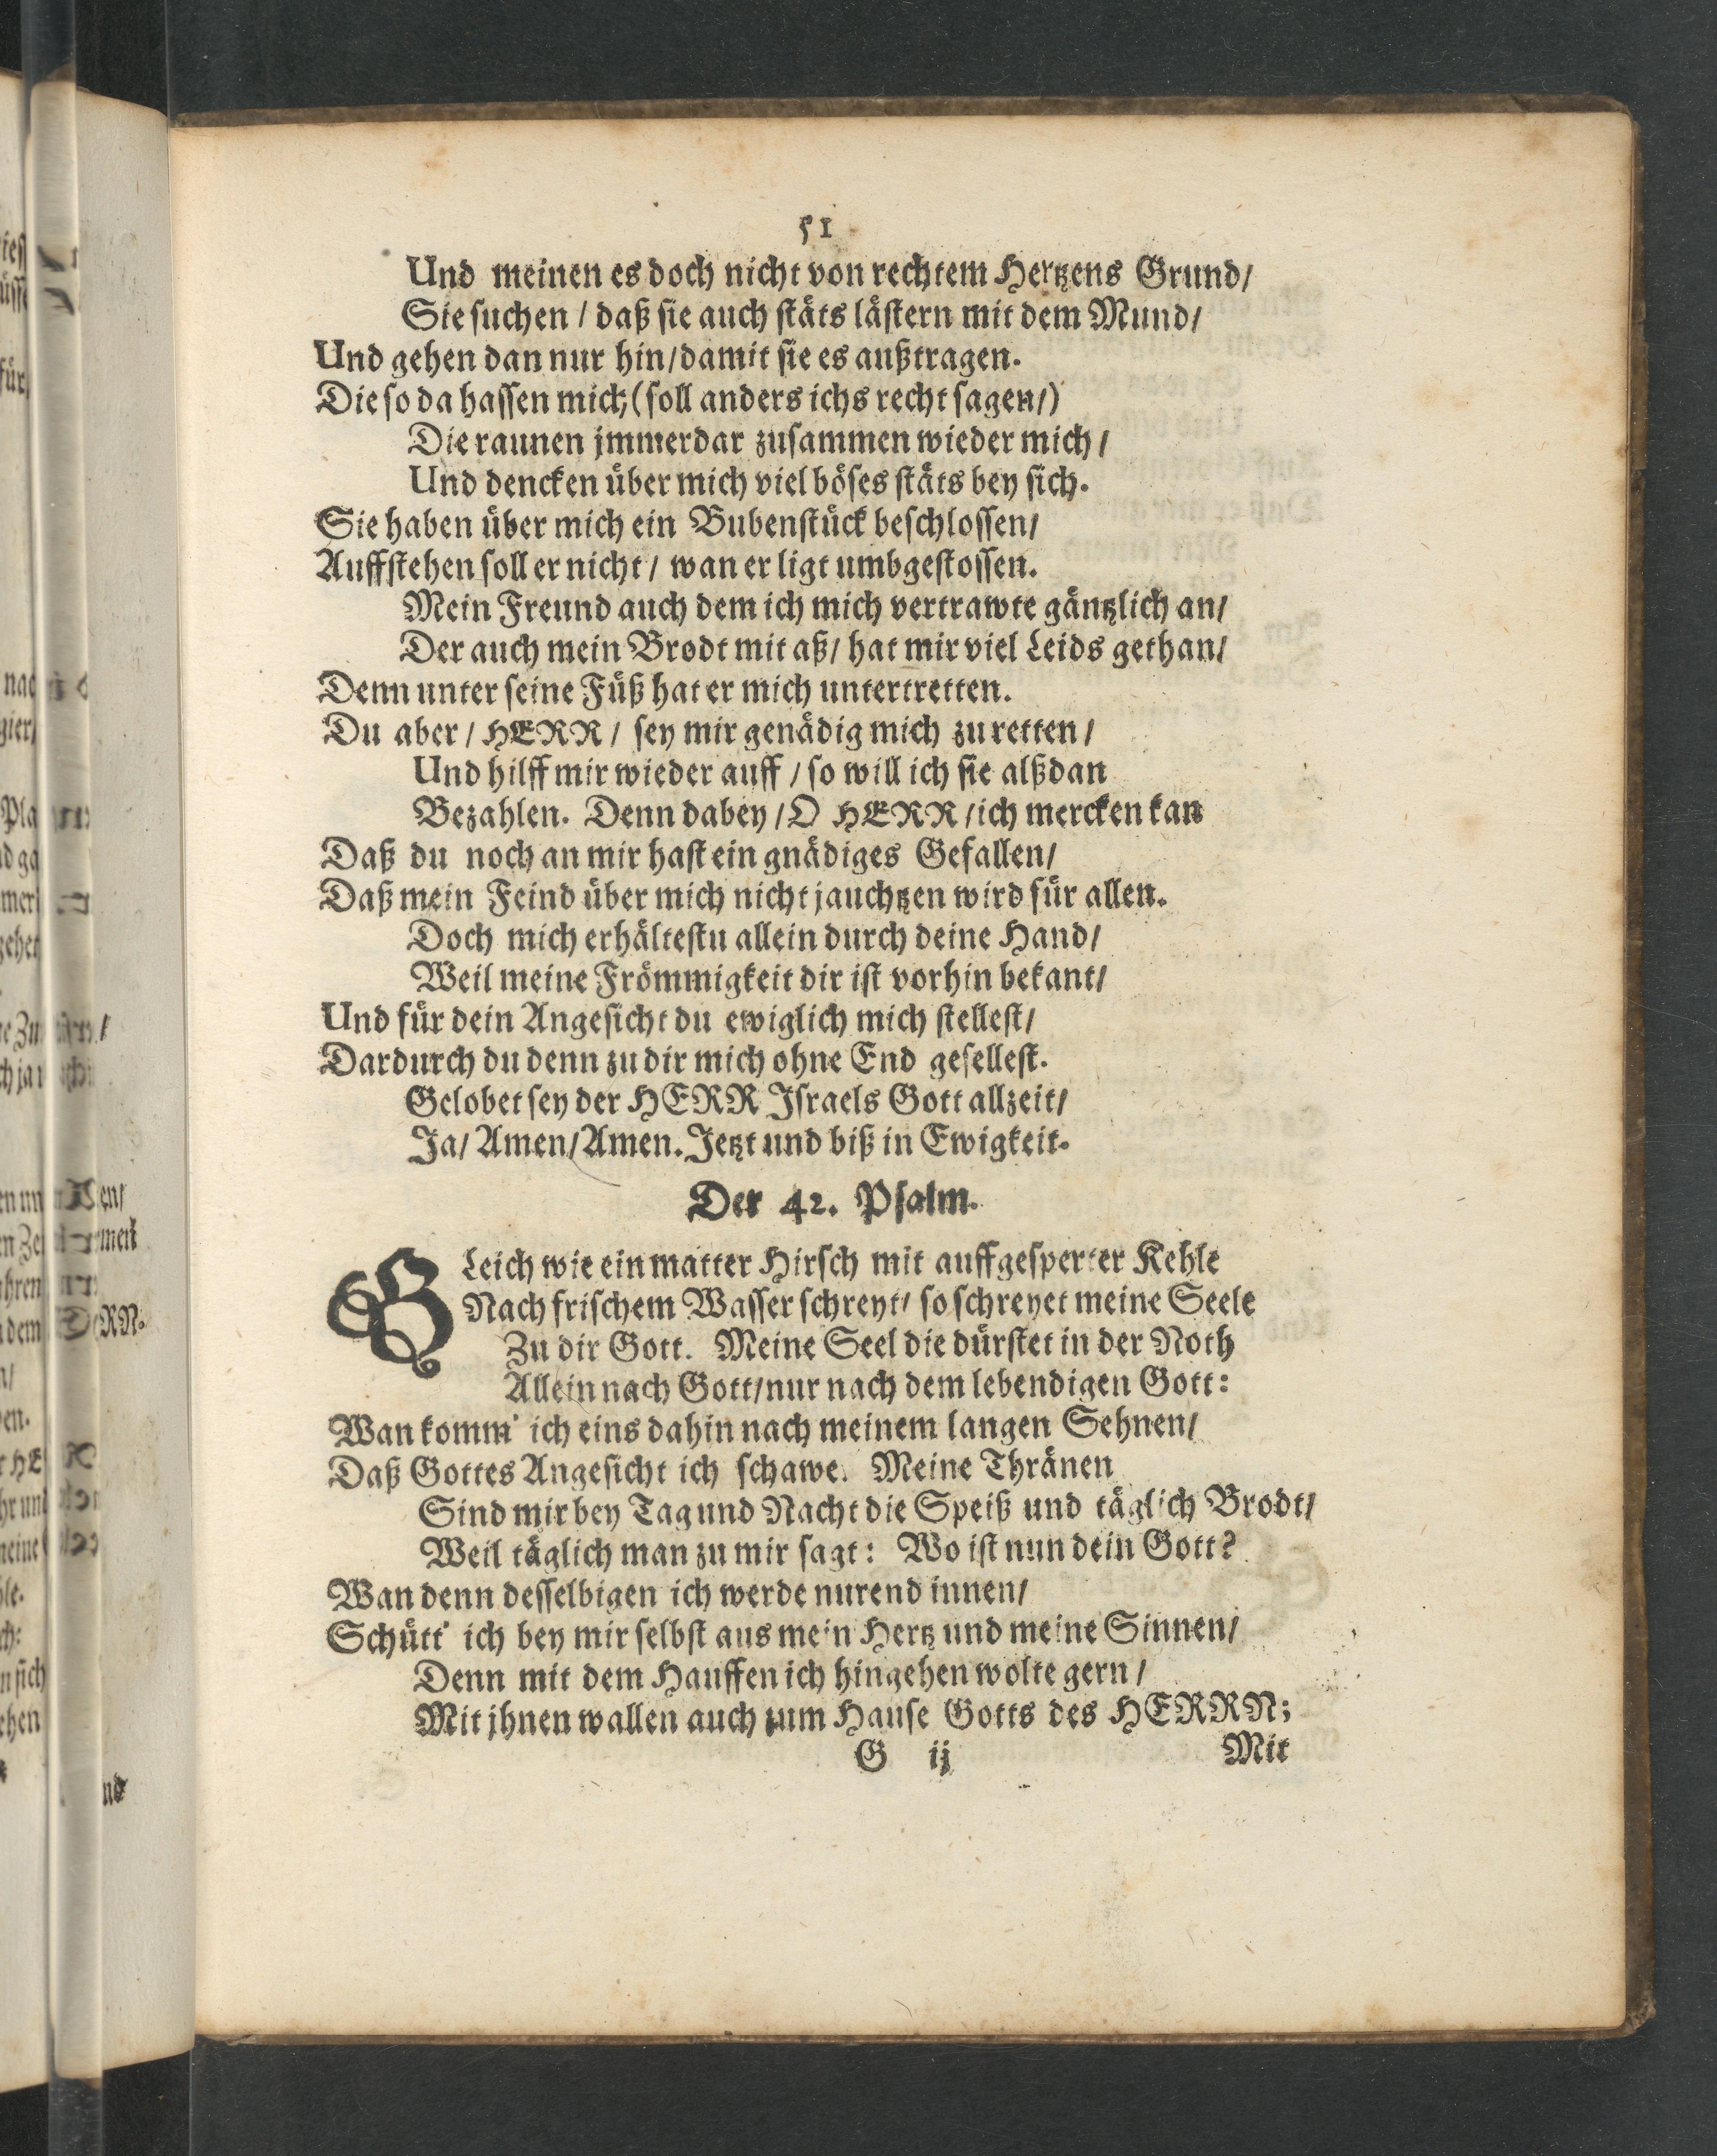 51
Und meinen es doch nicht von rechtem Hertzens Grund/
Sie suchen / daß sie auch stäts lästern mit dem Mund/
Und gehen dan nur hin/damit sie es außtragen.
Die so da hassen mich/(soll anders ichs recht sagen/)
Die raunen jmmerdar zusammen wieder mich/
Und dencken über mich viel böses stäts bey sich.
Sie haben über mich ein Bubenstück beschlossen/
Auffstehen soll er nicht/ wan er ligt umbgestossen.
Mein Freund auch dem ich mich vertrawte gäntzlich an/
Der auch mein Brodt mit aß/ hat mir viel Leids gethan/
Denn unter seine Füß hat er mich untertretten.
Du aber/ HERR/ sey mir genädig mich zu retten/
Und hilff mir wieder auff/ so will ich sie alßdan
Bezahlen. Denn dabey/O HERR/ich mercken kan
Daß du noch an mir hast ein gnädiges Gefallen/
Daß mein Feind über mich nicht jauchtzen wird für allen.
Doch mich erhältestu allein durch deine Hand/
Weil meine Frömmigkeit dir ist vorhin bekant/
Und für dein Angesicht du ewiglich mich stellest/
Dardurch du denn zu dir mich ohne End gesellest.
Gelobet sey der HERR Israels Gott allzeit/
Ja/ Amen/Amen. Jetzt und biß in Ewigkeit.
Der 42. Psalm.
GLeich wie ein matter Hirsch mit auffgesperter Kehle
Nach frischem Wasser schreyt/ so schreyet meine Seele
Zu dir Gott. Meine Seel die dürstet in der Noth
Allein nach Gott/nur nach dem lebendigen Gott:
Wan komm' ich eins dahin nach meinem langen Sehnen/
Daß Gottes Angesicht ich schawe. Meine Thränen
Sind mir bey Tag und Nacht die Speiß und täglich Brodt/
Weil täglich man zu mir sagt: Wo ist nun dein Gott?
Wan denn desselbigen ich werde nurend innen/
Schütt' ich bey mir selbst aus mein Hertz und meine Sinnen/
Denn mit dem Hauffen ich hingehen wolte gern/
Mit jhnen wallen auch zum Hause Gotts des HERRN;
G ij
Mit